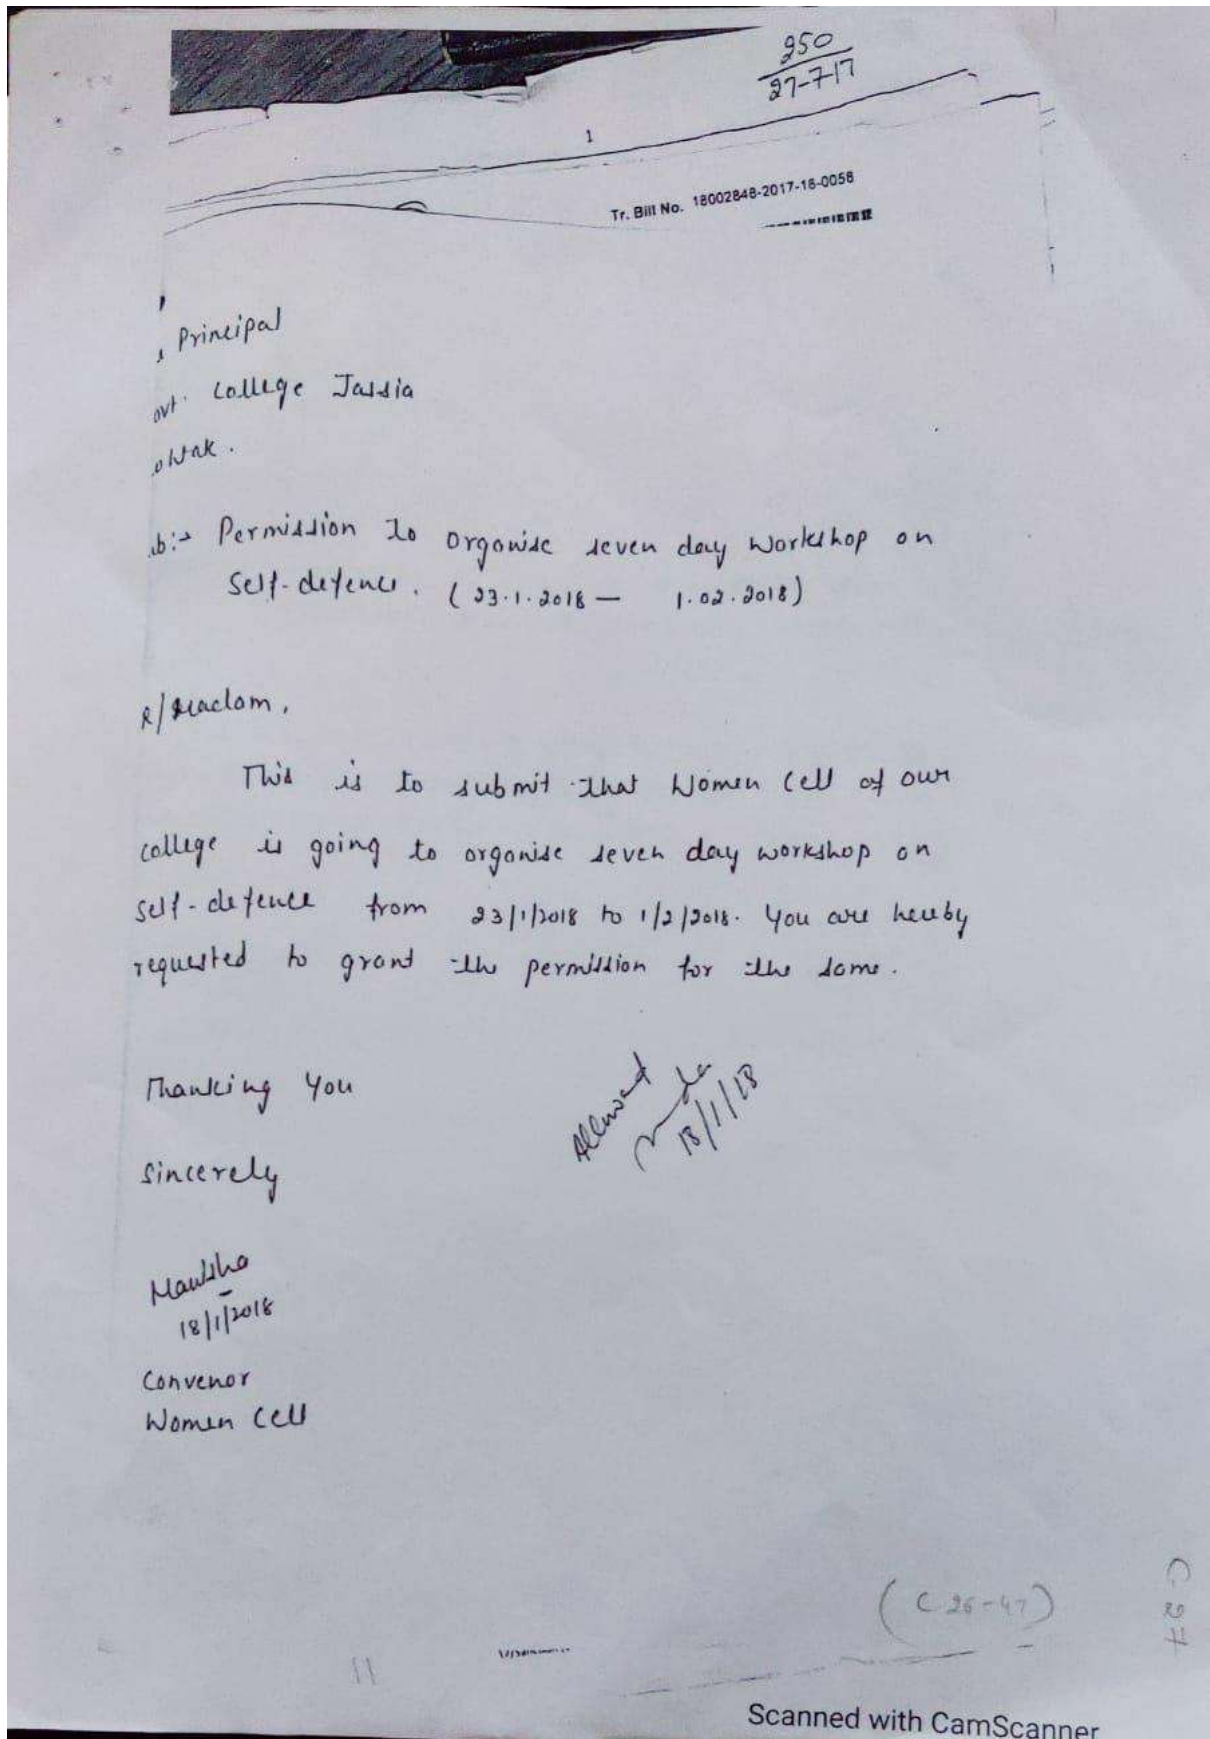 250
27-7-17
1
Tr. Bill No. 18002848-2017-18-0058
Principal
ovt. College Jassia
ohtak.
ub:- Permission to organise seven day workshop on
self-defence. (23.1.2018 — 1.02.2018)
R/Madam,
This is to submit that Women Cell of our
college is going to organise seven day workshop on
self-defence from 23/1/2018 to 1/2/2018. You are hereby
requested to grant the permission for the same.
Thanking You
Allowed
18/1/18
Sincerely
18/1/2018
Convenor
Women Cell
(C 26-47)
C-27
11
Scanned with CamScanner